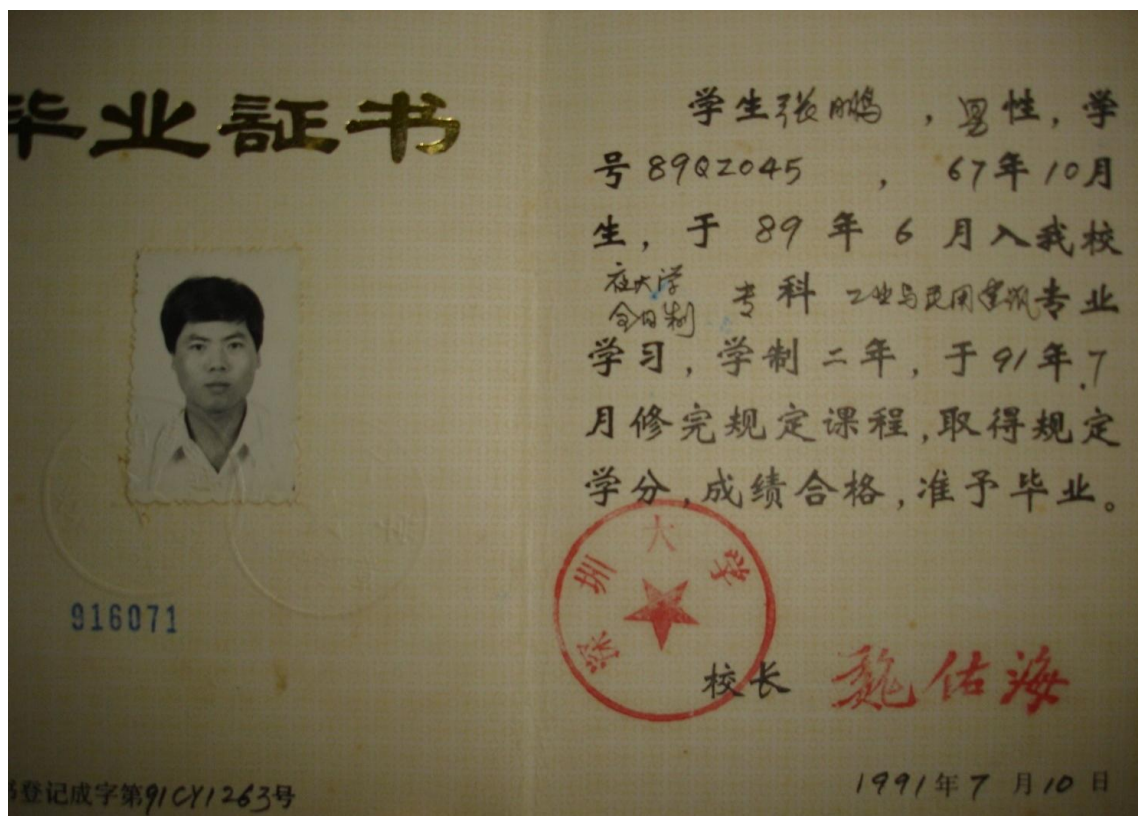 毕业証书
916071
书登记成字第91CY1263号
学生张鹏,男性,学
号89QZ045,67年10月
生,于89年6月入我校
夜大学
全日制 专科 工业与民用建筑专业
学习,学制二年,于91年7
月修完规定课程,取得规定
学分,成绩合格,准予毕业。
深圳大学
校长 魏佑海
1991年7月10日